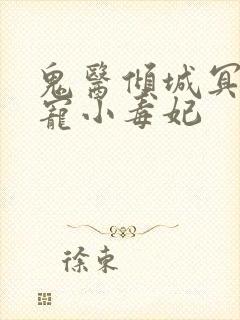 鬼醫傾城冥
寵小毒妃
徐東